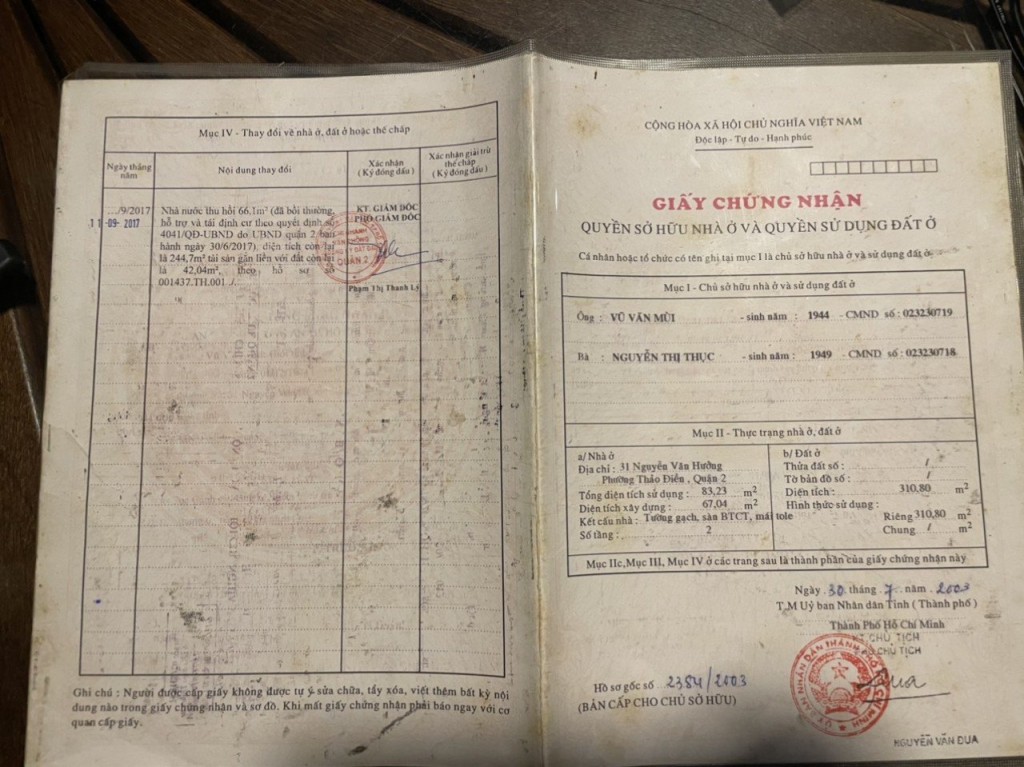 Mục IV - Thay đổi về nhà ở, đất ở hoặc thế chấp
Ngày tháng năm
Nội dung thay đổi
Xác nhận
( Ký đóng dấu )
Xác nhận giải trừ
thế chấp
( Ký đóng dấu )
.../9/2017
11-09-2017
Nhà nước thu hồi 66,1m² (đã bồi thường,
hỗ trợ và tái định cư theo quyết định số
4041/QĐ-UBND do UBND quận 2 ban
hành ngày 30/6/2017), diện tích còn lại
là 244,7m² tài sản gắn liền với đất còn lại
là 42,04m², theo hồ sơ số
001437.TH.001 ./.
KT. GIÁM ĐỐC
PHÓ GIÁM ĐỐC
QUẬN 2
Phạm Thị Thanh Lý
Ghi chú : Người được cấp giấy không được tự ý sửa chữa, tẩy xóa, viết thêm bất kỳ nội
dung nào trong giấy chứng nhận và sơ đồ. Khi mất giấy chứng nhận phải báo ngay với cơ
quan cấp giấy.
CỘNG HÒA XÃ HỘI CHỦ NGHĨA VIỆT NAM
Độc lập - Tự do - Hạnh phúc
GIẤY CHỨNG NHẬN
QUYỀN SỞ HỮU NHÀ Ở VÀ QUYỀN SỬ DỤNG ĐẤT Ở
Cá nhân hoặc tổ chức có tên ghi tại mục I là chủ sở hữu nhà ở và sử dụng đất ở.
Mục I - Chủ sở hữu nhà ở và sử dụng đất ở
Ông : VŨ VĂN MÙI - sinh năm : 1944 - CMND số : 023230719
Bà : NGUYỄN THỊ THỤC - sinh năm : 1949 - CMND số : 023230718
Mục II - Thực trạng nhà ở, đất ở
a/ Nhà ở
Địa chỉ : 31 Nguyễn Văn Hưởng
Phường Thảo Điền , Quận 2
Tổng diện tích sử dụng : 83,23 m²
Diện tích xây dựng : 67,04 m²
Kết cấu nhà : Tường gạch, sàn BTCT, mái tole
Số tầng : 2
b/ Đất ở
Thửa đất số : /
Tờ bản đồ số : /
Diện tích : 310,80 m²
Hình thức sử dụng :
Riêng 310,80 m²
Chung / m²
Mục IIc,Mục III, Mục IV ở các trang sau là thành phần của giấy chứng nhận này
Ngày 30 tháng 7 năm 2003
T.M Uỷ ban Nhân dân Tỉnh ( Thành phố )
Thành Phố Hồ Chí Minh
KT CHỦ TỊCH
PHÓ CHỦ TỊCH
Hồ sơ gốc số 2384/2003
(BẢN CẤP CHO CHỦ SỞ HỮU)
NGUYỄN VĂN ĐUA